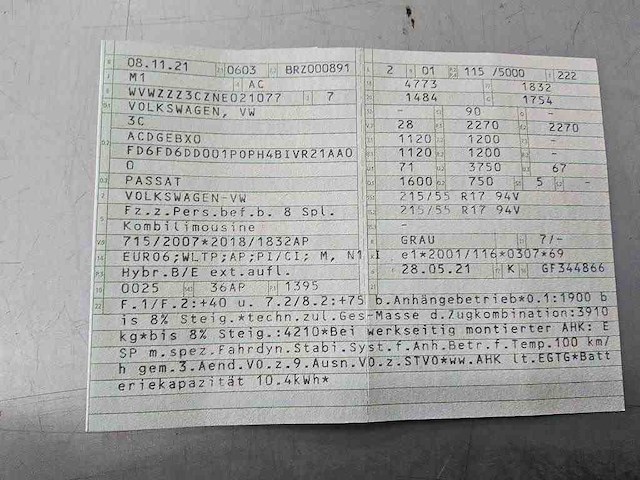 08.11.21 0603 BRZ000891
M1 AC
WVWZZZ3CZNE021077 7
VOLKSWAGEN, VW
3C
ACDGEBX0
FD6FD6DD001P0PH4BIVR21AA0
0
PASSAT
VOLKSWAGEN-VW
Fz.z.Pers.bef.b. 8 Spl.
Kombilimousine
715/2007*2018/1832AP
EURO6;WLTP;AP;PI/CI; M, N1 I
Hybr.B/E ext.aufl.
0025 36AP 1395
2 01 115 /5000 222
4773 1832
1484 1754
- 90 -
28 2270 2270
1120 1200 -
1120 1200 -
71 3750 67
1600 750 5 -
215/55 R17 94V
215/55 R17 94V
-
GRAU 7/-
e1*2001/116*0307*69
28.05.21 K GF344866
F.1/F.2:+40 u. 7.2/8.2:+75 b.Anhängebetrieb*0.1:1900 b
is 8% Steig.*techn.zul.Ges-Masse d.Zugkombination:3910
kg*bis 8% Steig.:4210*Bei werkseitig montierter AHK: E
SP m.spez.Fahrdyn.Stabi.Syst.f.Anh.Betr.f.Temp.100 km/
h gem.3.Aend.VO.z.9.Ausn.VO.z.STVO*ww.AHK lt.EGTG*Batt
eriekapazität 10.4kWh*